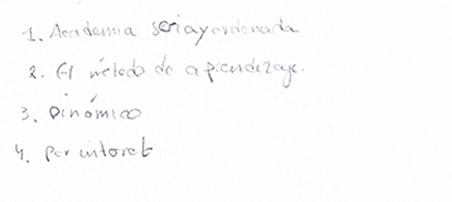 1. Academia seria y ordenada
2. El método de aprendizaje.
3. Dinómico
4. por internet